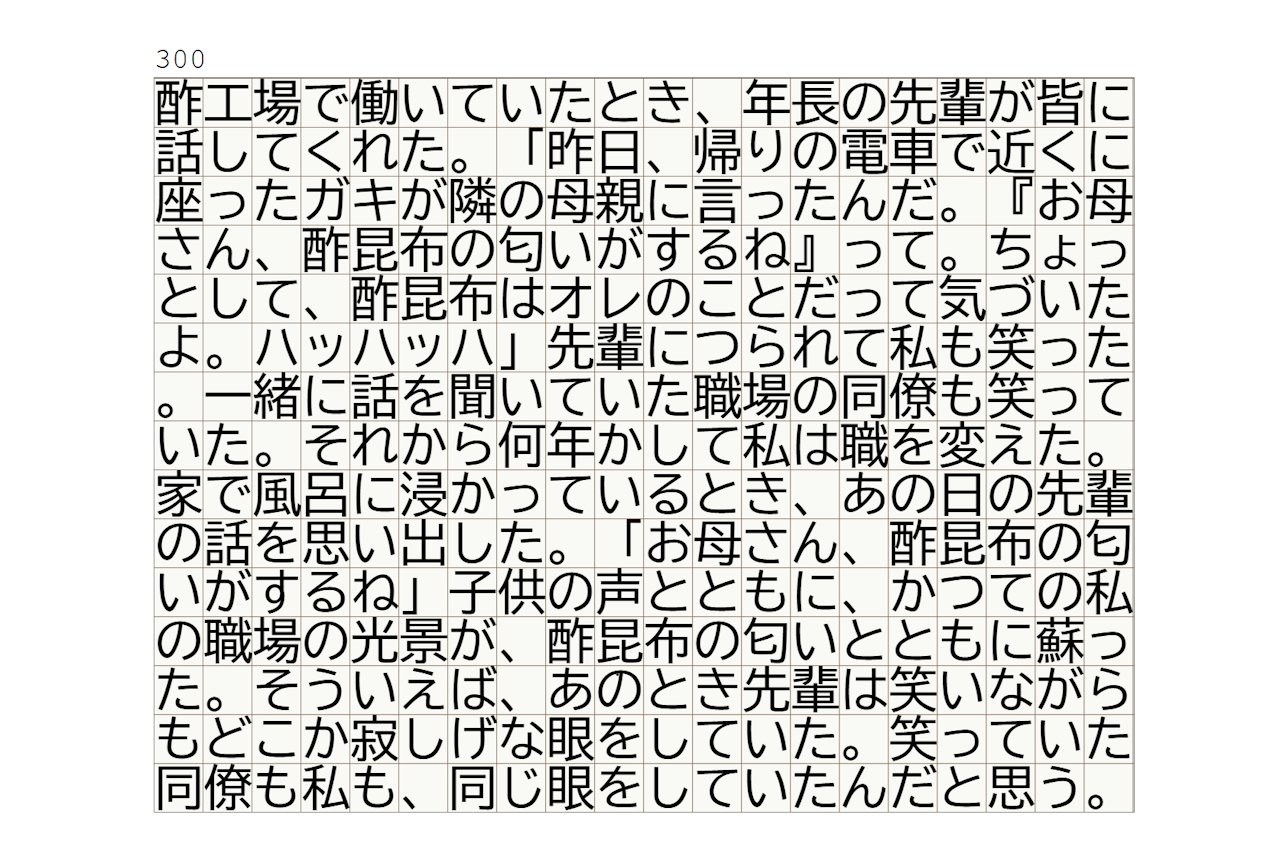 300
酢工場で働いていたとき、年長の先輩が皆に
話してくれた。「昨日、帰りの電車で近くに
座ったガキが隣の母親に言ったんだ。『お母
さん、酢昆布の匂いがするね』って。ちょっ
として、酢昆布はオレのことだって気づいた
よ。ハッハッハ」先輩につられて私も笑った
。一緒に話を聞いていた職場の同僚も笑って
いた。それから何年かして私は職を変えた。
家で風呂に浸かっているとき、あの日の先輩
の話を思い出した。「お母さん、酢昆布の匂
いがするね」子供の声とともに、かつての私
の職場の光景が、酢昆布の匂いとともに蘇っ
た。そういえば、あのとき先輩は笑いながら
もどこか寂しげな眼をしていた。笑っていた
同僚も私も、同じ眼をしていたんだと思う。